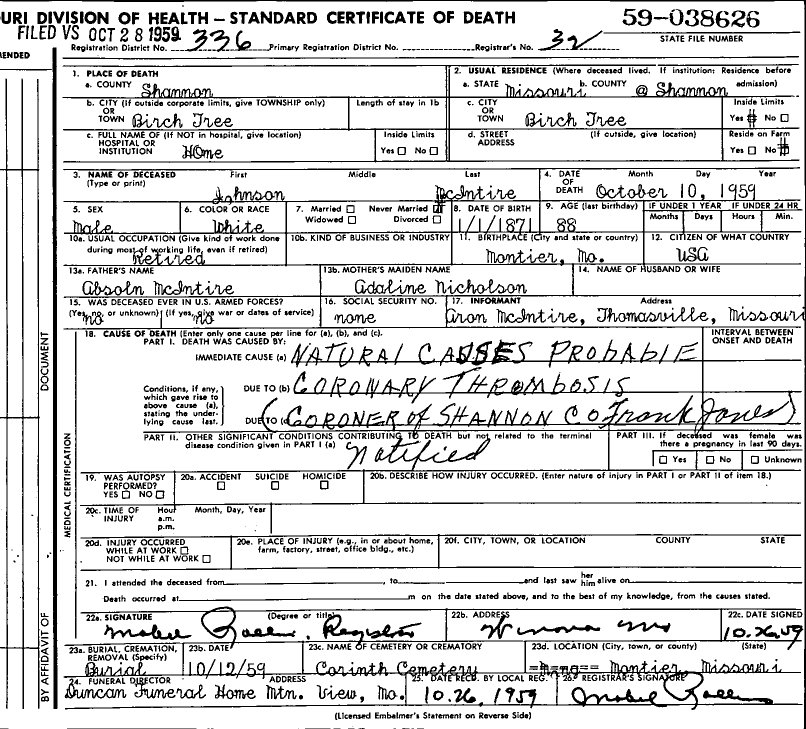 URI DIVISION OF HEALTH — STANDARD CERTIFICATE OF DEATH 59-038626
FILED VS OCT 28 1959 STATE FILE NUMBER
Registration District No. 336 Primary Registration District No. Registrar's No. 32
ENDED
1. PLACE OF DEATH 2. USUAL RESIDENCE (Where deceased lived. If institution: Residence before admission)
a. COUNTY Shannon a. STATE Missouri b. COUNTY @ Shannon
b. CITY (If outside corporate limits, give TOWNSHIP only) OR TOWN Birch Tree Length of stay in 1b c. CITY OR TOWN Birch Tree Inside Limits Yes No
c. FULL NAME OF (If NOT in hospital, give location) HOSPITAL OR INSTITUTION HOme Inside Limits Yes No d. STREET ADDRESS (If outside, give location) Reside on Farm Yes No
3. NAME OF DECEASED (Type or print) First Middle Last 4. DATE OF DEATH Month Day Year
Johnson McIntire October 10, 1959
5. SEX 6. COLOR OR RACE 7. Married Never Married Widowed Divorced 8. DATE OF BIRTH 9. AGE (last birthday) IF UNDER 1 YEAR IF UNDER 24 HR
Months Days Hours Min.
Male White 1/1/1871 88
10a. USUAL OCCUPATION (Give kind of work done during most of working life, even if retired) 10b. KIND OF BUSINESS OR INDUSTRY 11. BIRTHPLACE (City and state or country) 12. CITIZEN OF WHAT COUNTRY
Retired Montier, Mo. USA
13a. FATHER'S NAME 13b. MOTHER'S MAIDEN NAME 14. NAME OF HUSBAND OR WIFE
Absoln McIntire Adaline Nicholson
15. WAS DECEASED EVER IN U.S. ARMED FORCES? 16. SOCIAL SECURITY NO. 17. INFORMANT Address
(Yes, no, or unknown) (If yes, give war or dates of service)
no no none Aron McIntire, Thomasville, Missouri
18. CAUSE OF DEATH (Enter only one cause per line for (a), (b), and (c). INTERVAL BETWEEN ONSET AND DEATH
PART I. DEATH WAS CAUSED BY:
IMMEDIATE CAUSE (a) NATURAL CAUSES PROBABLE
Conditions, if any, which gave rise to above cause (a), stating the underlying cause last.
DUE TO (b) CORONARY THROMBOSIS
DUE TO (c) (CORONER of SHANNON CO Frank Jones)
PART II. OTHER SIGNIFICANT CONDITIONS CONTRIBUTING TO DEATH but not related to the terminal disease condition given in PART I (a) PART III. If deceased was female was there a pregnancy in last 90 days.
Notified Yes No Unknown
19. WAS AUTOPSY PERFORMED? YES NO 20a. ACCIDENT SUICIDE HOMICIDE 20b. DESCRIBE HOW INJURY OCCURRED. (Enter nature of injury in PART I or PART II of item 18.)
20c. TIME OF INJURY Hour a.m. p.m. Month, Day, Year
20d. INJURY OCCURRED WHILE AT WORK NOT WHILE AT WORK 20e. PLACE OF INJURY (e.g., in or about home, farm, factory, street, office bldg., etc.) 20f. CITY, TOWN, OR LOCATION COUNTY STATE
21. I attended the deceased from , to and last saw her him alive on
Death occurred at m on the date stated above, and to the best of my knowledge, from the causes stated.
22a. SIGNATURE (Degree or title) 22b. ADDRESS 22c. DATE SIGNED
Mabel Registrar Winona Mo 10.26.59
23a. BURIAL, CREMATION, REMOVAL (Specify) 23b. DATE 23c. NAME OF CEMETERY OR CREMATORY 23d. LOCATION (City, town, or county) (State)
Burial 10/12/59 Corinth Cemetery Montier, Missouri
24. FUNERAL DIRECTOR ADDRESS 25. DATE RECD. BY LOCAL REG. 26. REGISTRAR'S SIGNATURE
Duncan Funeral Home Mtn. View, Mo. 10.26.1959 Mabel
(Licensed Embalmer's Statement on Reverse Side)
DOCUMENT
MEDICAL CERTIFICATION
BY AFFIDAVIT OF